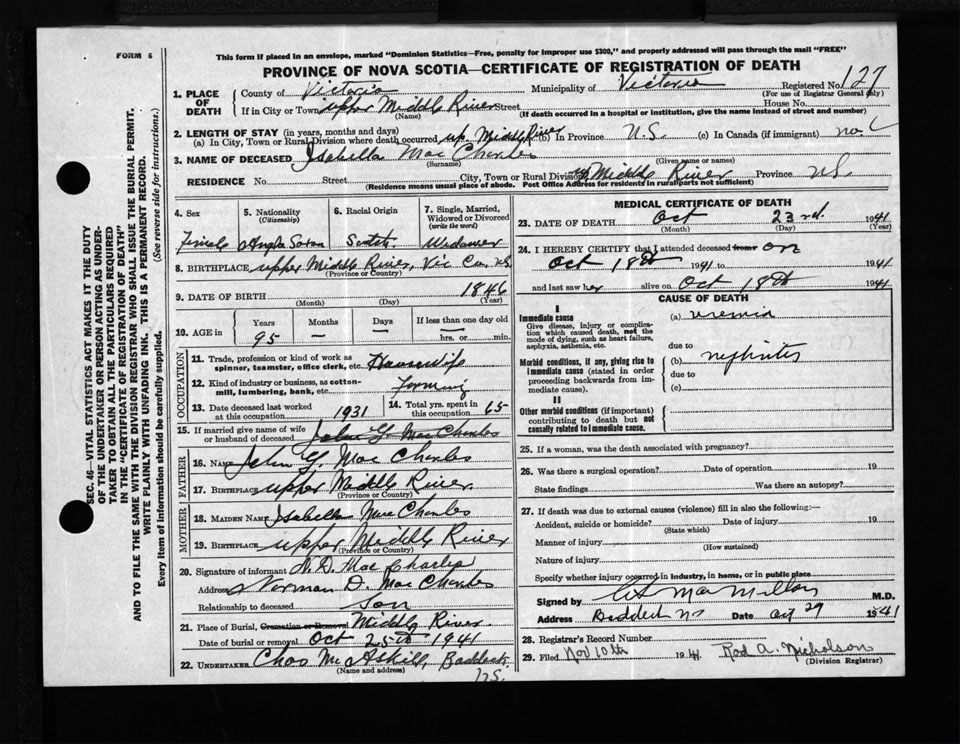 FORM 6
This form if placed in an envelope, marked "Dominion Statistics—Free, penalty for improper use $300," and properly addressed will pass through the mail "FREE"
PROVINCE OF NOVA SCOTIA—CERTIFICATE OF REGISTRATION OF DEATH
1. PLACE OF DEATH
County of Victoria Municipality of Victoria Registered No. 127
(For use of Registrar General only)
If in City or Town upper Middle River Street House No.
(Name) (If death occurred in a hospital or institution, give the name instead of street and number)
2. LENGTH OF STAY (in years, months and days)
(a) In City, Town or Rural Division where death occurred up. Middle River (b) In Province N.S. (c) In Canada (if immigrant) no
3. NAME OF DECEASED Isabella Mac Charles
(Surname) (Given name or names)
RESIDENCE No. Street City, Town or Rural Division up Middle River Province NS.
(Residence means usual place of abode. Post Office Address for residents in rural parts not sufficient)
4. Sex 5. Nationality (Citizenship) 6. Racial Origin 7. Single, Married, Widowed or Divorced (write the word)
Female Anglo Saxon Scotch Widower
8. BIRTHPLACE upper Middle River, Vic Co., NS
(Province or Country)
9. DATE OF BIRTH 1846
(Month) (Day) (Year)
10. AGE in Years Months Days If less than one day old
95 — — hrs. or min.
OCCUPATION
11. Trade, profession or kind of work as spinner, teamster, office clerk, etc. Housewife
12. Kind of industry or business, as cotton-mill, lumbering, bank, etc. Farming
13. Date deceased last worked at this occupation 1931 14. Total yrs. spent in this occupation 65
15. If married give name of wife or husband of deceased John Y. Mac Charles
FATHER
16. Name John Y. Mac Charles
17. Birthplace upper Middle River
(Province or Country)
MOTHER
18. Maiden Name Isabella Mac Charles
19. Birthplace upper Middle River
(Province or Country)
20. Signature of informant N. D. Mac Charles
Address Norman D. Mac Charles
Relationship to deceased Son
21. Place of Burial, Cremation or Removal Middle River
Date of burial or removal Oct 25th 1941
22. UNDERTAKER Chas McAskill, Baddeck
N.S.
(Name and address)
MEDICAL CERTIFICATE OF DEATH
23. DATE OF DEATH Oct 23rd. 1941
(Month) (Day) (Year)
24. I HEREBY CERTIFY that I attended deceased from on
Oct 18th 1941 to 1941
and last saw her alive on Oct 18th 1941
CAUSE OF DEATH
I
Immediate cause
Give disease, injury or complication which caused death, not the mode of dying, such as heart failure, asphyxia, asthenia, etc.
(a) uremia
due to
Morbid conditions, if any, giving rise to immediate cause (stated in order proceeding backwards from immediate cause).
(b) nephritis
due to
(c)
II
Other morbid conditions (if important) contributing to death but not causally related to immediate cause.
25. If a woman, was the death associated with pregnancy?
26. Was there a surgical operation? Date of operation 19
State findings Was there an autopsy?
27. If death was due to external causes (violence) fill in also the following:—
Accident, suicide or homicide? Date of injury 19
(State which)
Manner of injury
(How sustained)
Nature of injury
Specify whether injury occurred in industry, in home, or in public place
Signed by MacMillan M.D.
Address Baddeck NS Date Oct 29 1941
28. Registrar's Record Number
29. Filed Nov 10th 1941 Rod A. Nicholson
(Division Registrar)
SEC. 46—VITAL STATISTICS ACT MAKES IT THE DUTY
OF THE UNDERTAKER OR PERSON ACTING AS UNDER-
TAKER TO OBTAIN ALL THE PARTICULARS REQUIRED
IN THE "CERTIFICATE OF REGISTRATION OF DEATH"
AND TO FILE THE SAME WITH THE DIVISION REGISTRAR WHO SHALL ISSUE THE BURIAL PERMIT.
WRITE PLAINLY WITH UNFADING INK. THIS IS A PERMANENT RECORD.
Every item of information should be carefully supplied. (See reverse side for instructions.)